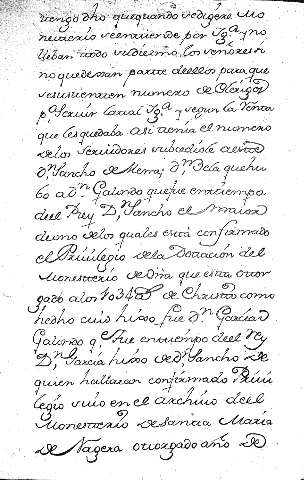 tengo dho que quando se dize Mo
nesterio se entiende por Yg.ª y no
lleban todo el diezmo, los señores si
no quedaran parte dellos para que
se sustentasen numero de Clerigos
p.ª seruir la tal Yg.ª y segun la Renta
que les quedaba asi tenia el numero
de los seruidores subcediole a este
d.n Sancho de Mena; d.n Vela que hu
bo a d.n Galindo que fue en tiempo
de el Rey D.n Sancho el Maior
de uno de los quales esta confirmado
el Priuilegio de la Dotacion del
Monesterio de Oña que esta otor
gado a los 1034 de Christo como
hedho cuio hixo fue d.n Garcia
Galindo q.e fue en tiempo de el Rey
D.n Garcia hixo de d.n Sancho de
quien hallaron confirmado Priui
legio uuio en el archiuo de el
Monesterio de Santa Maria
de Nagera otorgado año de